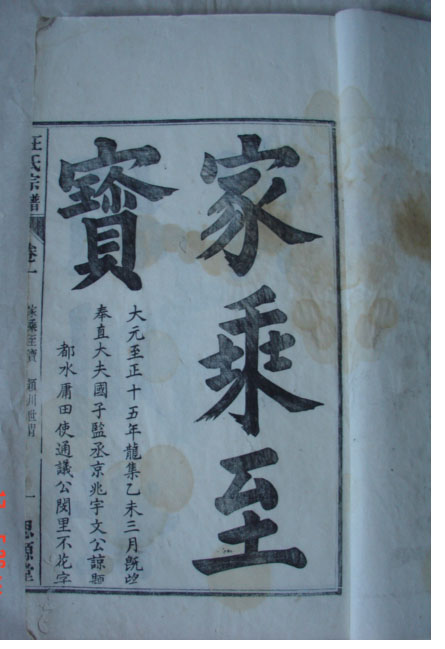 家乘至
寶
大元至正十五年龍集乙未三月旣望
奉直大夫國子監丞京兆宇文公諒題
都水庸田使通議公閔里不花字
汪氏宗譜
卷一
家乘至寶
潁川世胄
一
思源堂